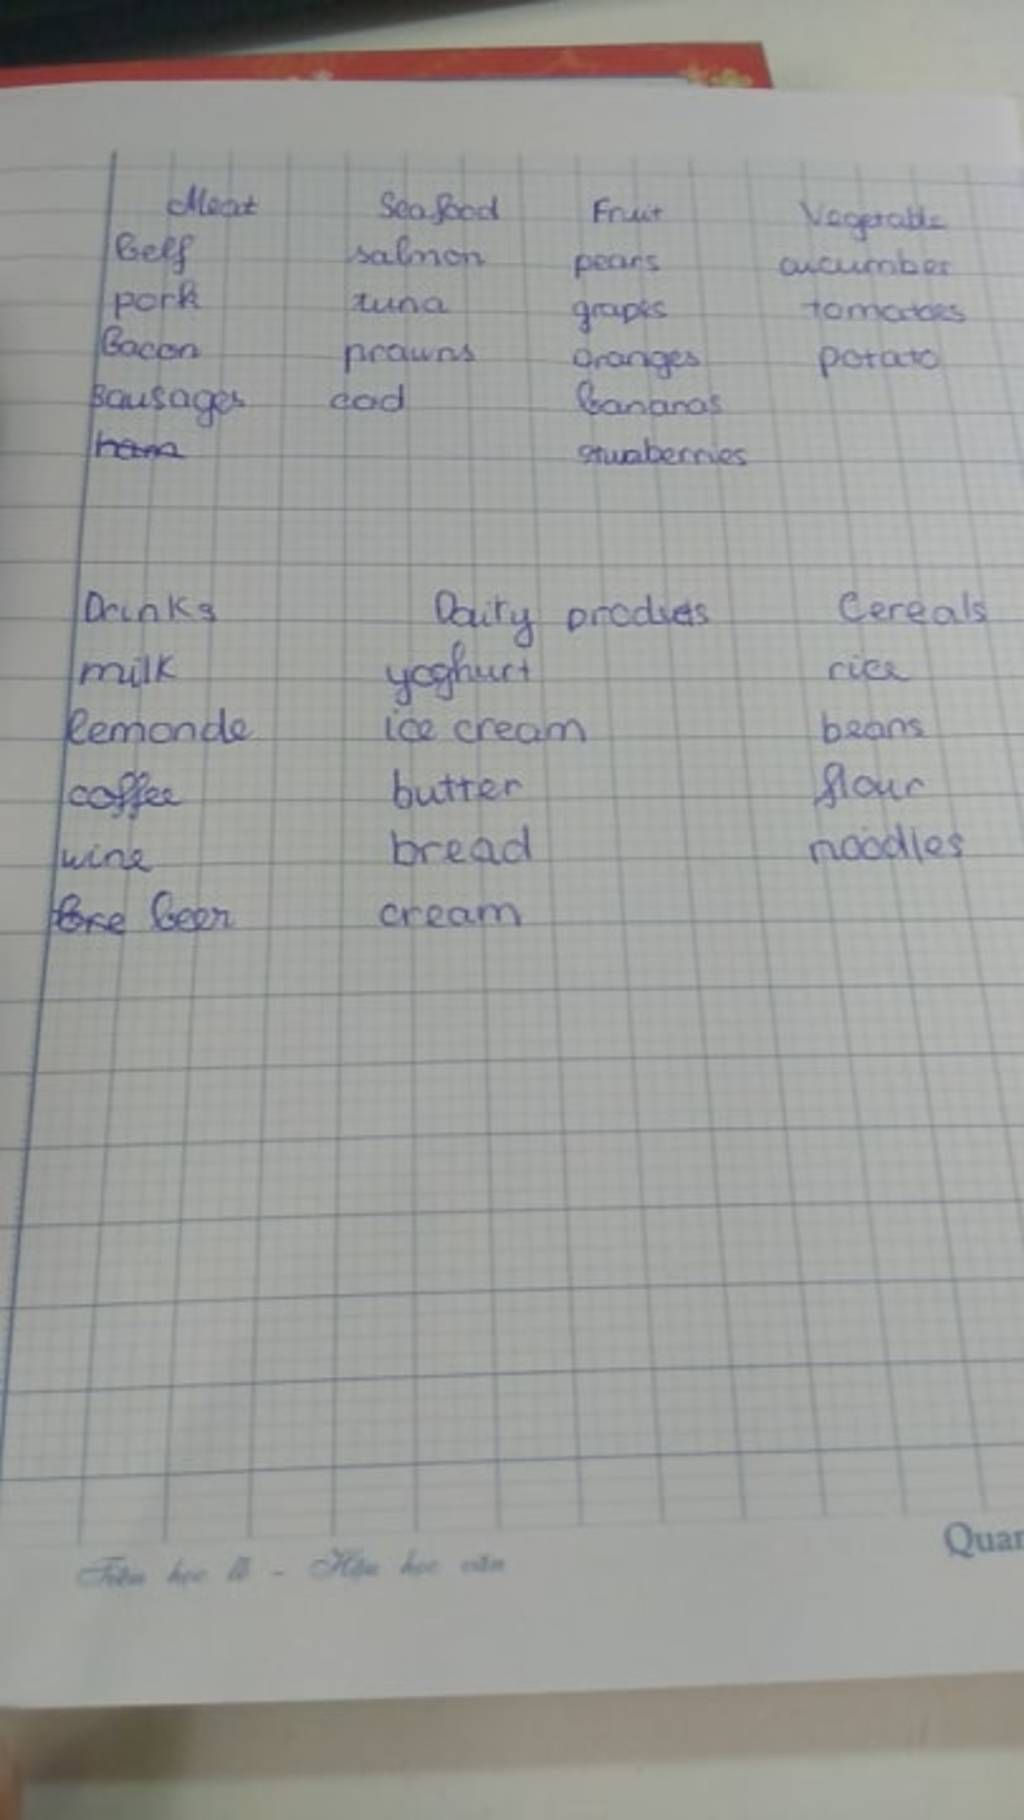 Meat Seafood Fruit Vegetable
Belf salmon pears cucumber
pork tuna grapes tomatoes
Bacon prawns oranges potato
Sausages cod Bananas
ham stwaberries
Drinks Dairy produets Cereals
milk yoghurt rice
lemonde ice cream beans
coffee butter flour
wine bread noodles
Bre Beer cream
Quan
Tiên học lễ - Hậu học văn